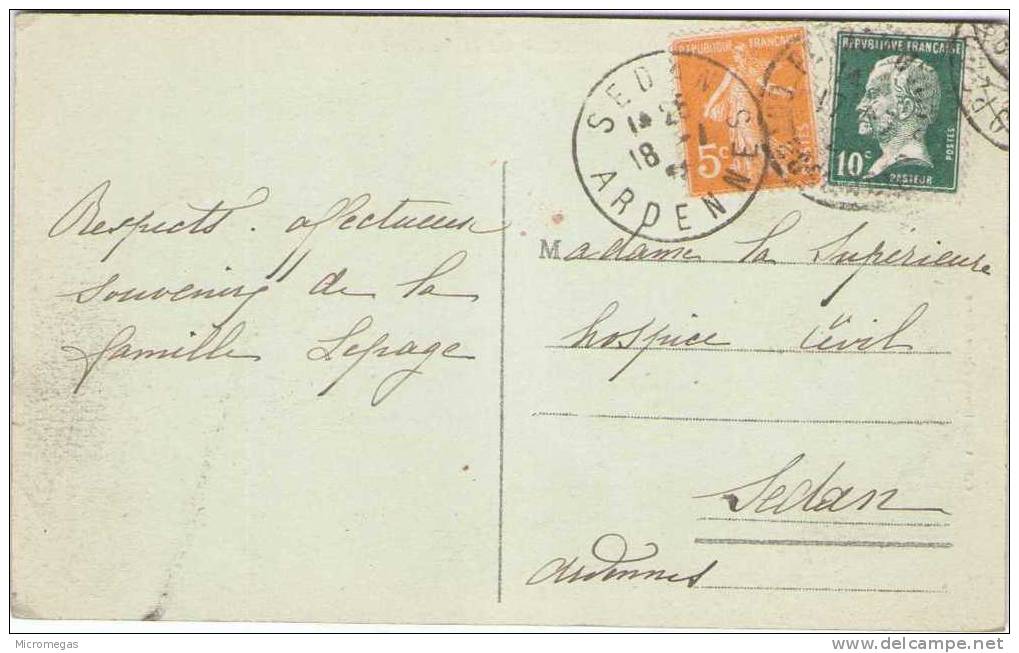 Respects. affectueux
souvenirs de la
famille Lepage
REPUBLIQUE FRANÇAISE
5c
REPVBLIQUE FRANÇAISE
10c
POSTES
PASTEUR
SEDAN
18
ARDENNES
Madame la Supérieure
hospice Civil
Sedan
Ardennes
Micromegas
www.delcampe.net